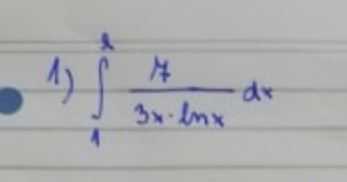 1) ∫₁ˡ 7 / (3x · lnx) dx